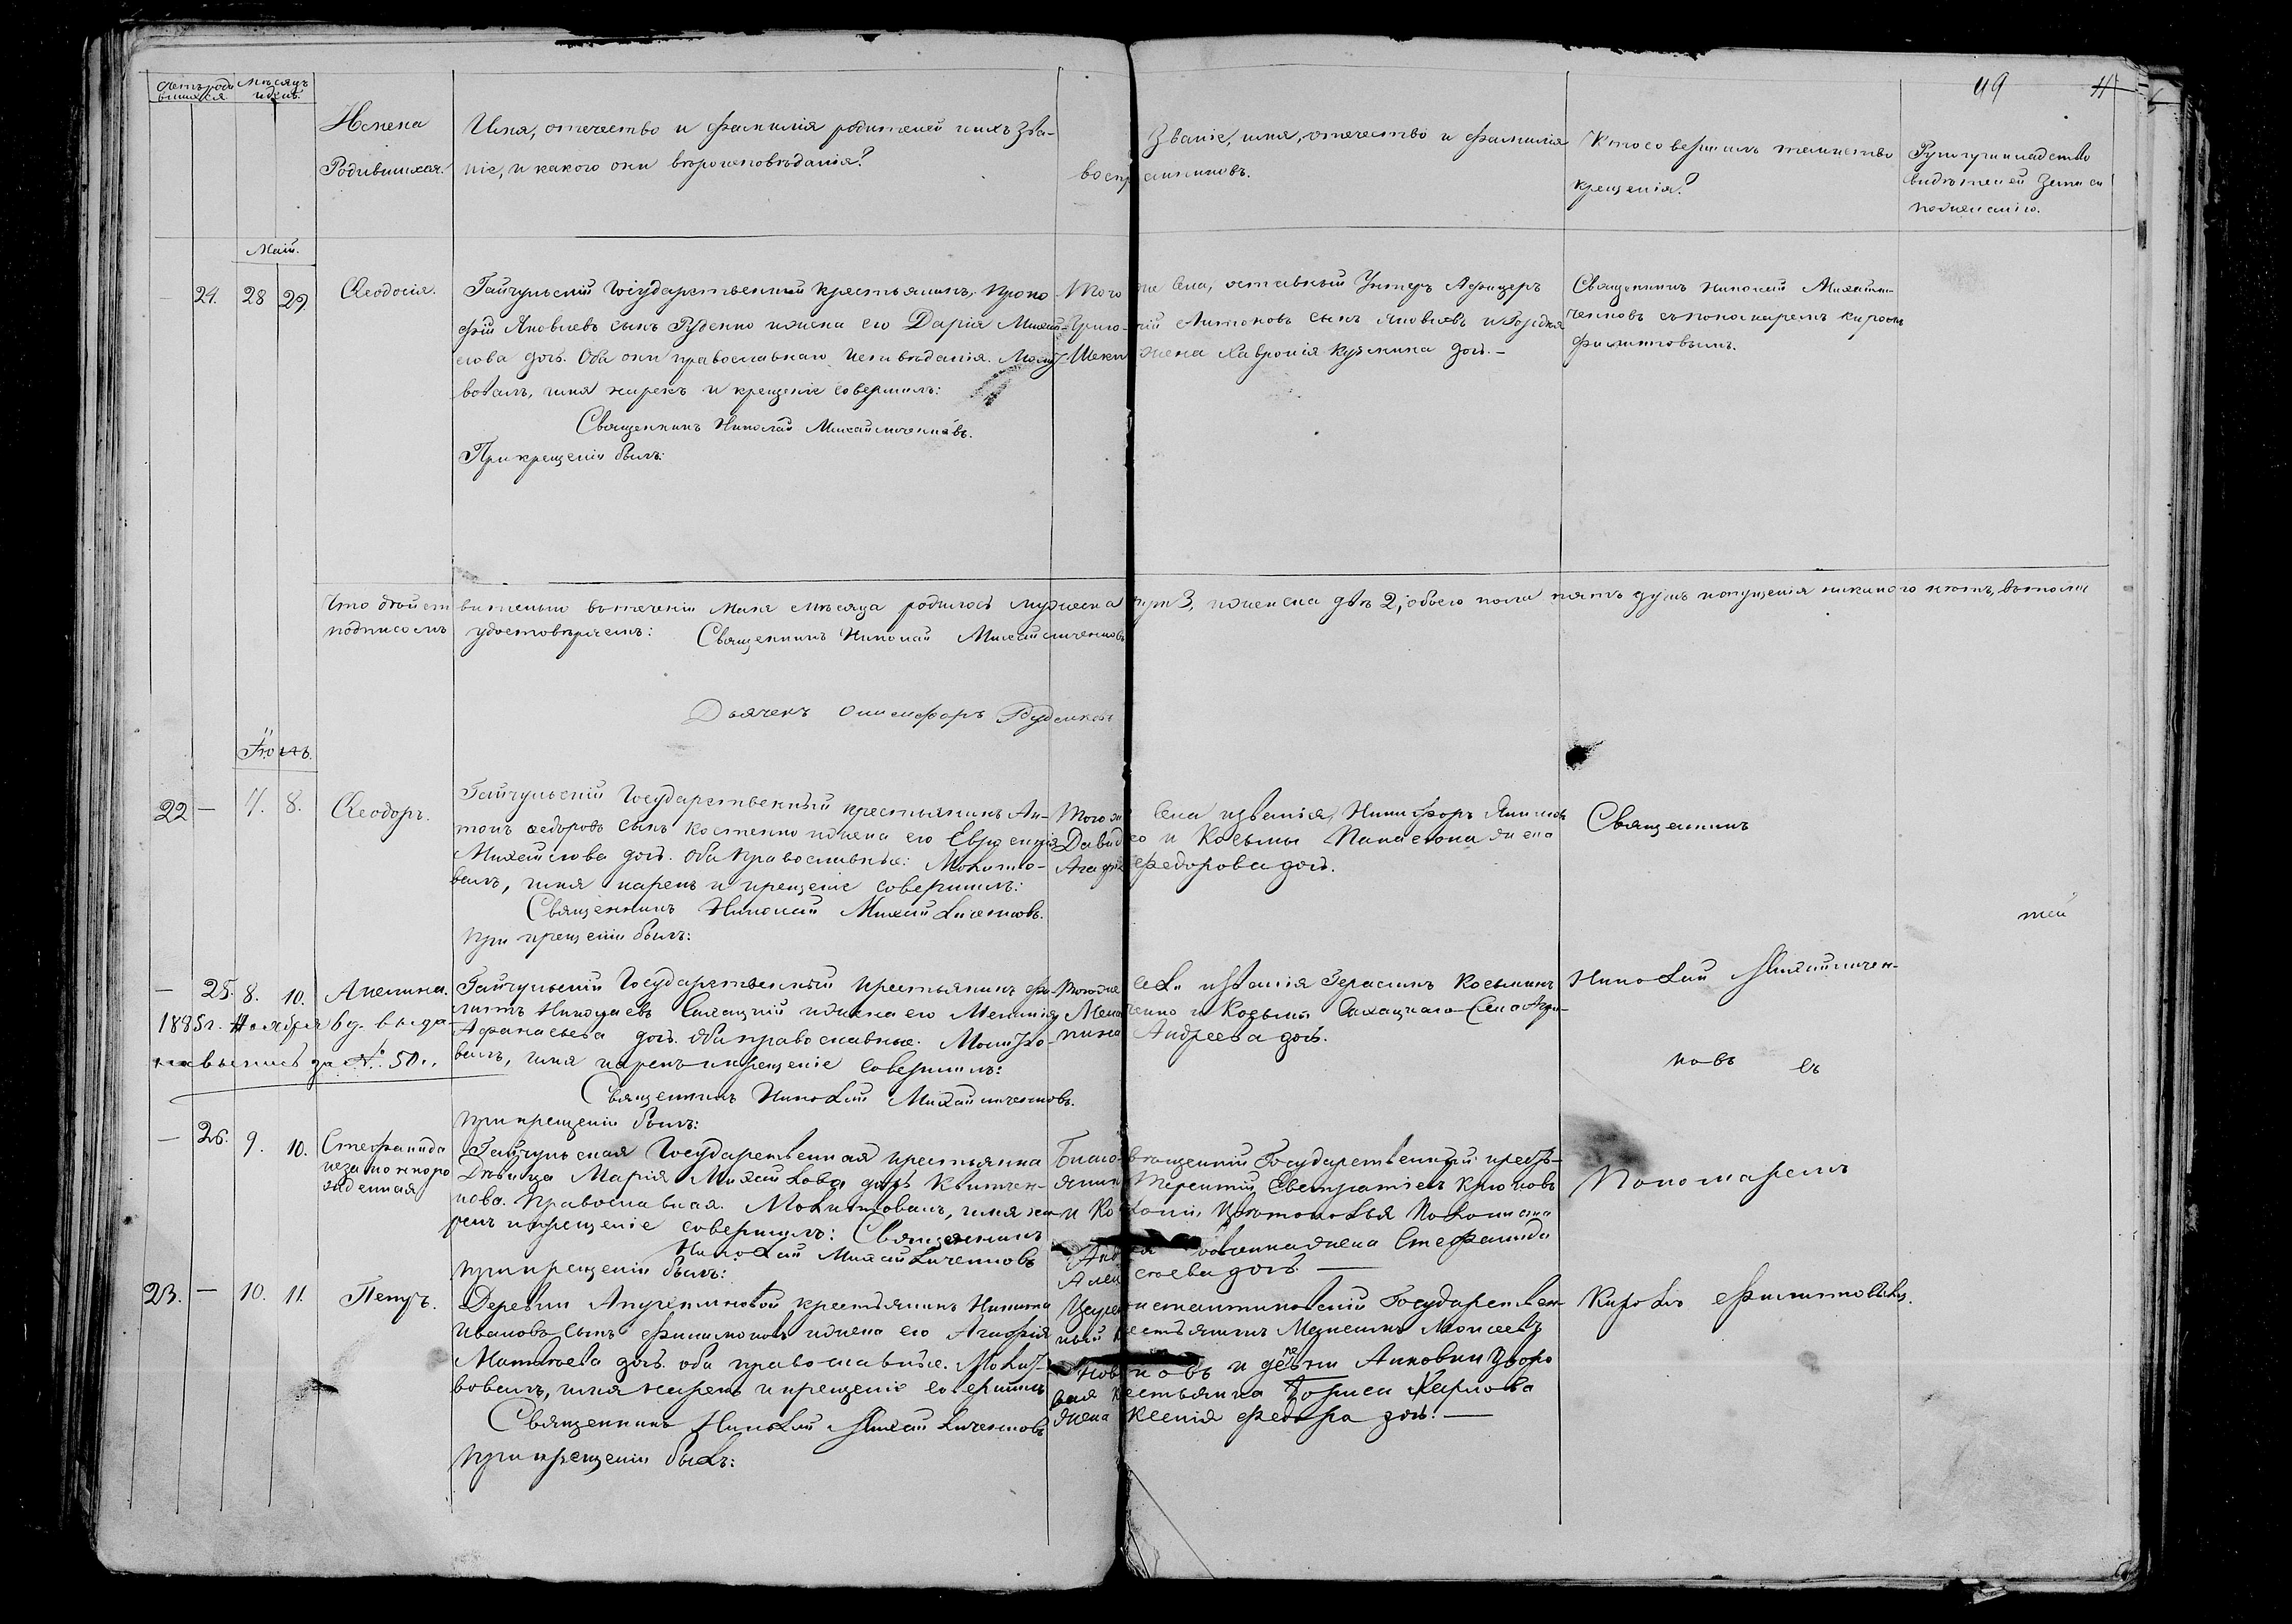 Счетъ роди Мѣсяцъ
вшихся. и день.
49
Имена
Родившихся.
Имя, отчество и фамилія родителей и ихъ зва-
ніе, и какого они вѣроисповѣданія?
Званіе, имя, отчество и фамилія
воспріемниковъ.
Кто совершилъ таинство
крещенія?
Рукоприкладство
свидѣтелей записи
по желанію.
Май.
— 24. 28 29. Ѳеодосія.
Гайчульскій Государственный крестьянинъ, Проко
фій Яковлевъ сынъ Руденко и жена его Дарія Михай-
лова дочь. Оба они православнаго исповѣданія. Молит-
вовалъ, имя нарекъ и крещеніе совершилъ:
Священникъ Николай Михайличенковъ.
При крещеніи былъ:
Того же села, отставный Унтеръ Афицеръ
Григорій Антоновъ сынъ Яковлевъ и
жена Хавронія Кузмина дочь. —
Священникъ Николай Михайли-
ченковъ съ пономаремъ Киромъ
Филиповымъ.
Что дѣйствительно въ теченіи Мая мѣсяца родилось мужеска три 3, и женска двѣ 2, обоего пола пять душъ и опущенія никакого нѣтъ, въ томъ
подписомъ удостовѣряемъ: Священникъ Николай Михайличенковъ
Дьячекъ Онисифоръ Руденковъ
Іюнь.
22 — 7. 8. Ѳеодоръ.
Гайчульскій Государственный крестьянинъ Ан-
тонъ Федоровъ сынъ Костенко и жена его Евросинія
Михайлова дочь. Оба православные: Молитво-
валъ, имя нарекъ и крещеніе совершилъ:
Священникъ Николай Михайличенковъ.
При крещеніи былъ:
Того же села и званія, Никифоръ Якимовъ
Давидко и Козьмы Панасюка жена
Агафія Федорова дочь.
Священникъ
тей
— 25. 8. 10. Акелина.
1885г. Ноября 6 д. выда
на выпись за №. 50.
Гайчульскій Государственный крестьянинъ Фи-
липъ Николаевъ Сахацкій и жена его Меланія
Афанасьева дочь. Оба православные. Молитво-
валъ, имя нарекъ и крещеніе совершилъ:
Священникъ Николай Михайличенковъ.
При крещеніи былъ:
Того же села и званія Герасимъ Косьминъ
и Козьмы Сахацкаго жена Агри-
пина Андреева дочь.
Николай Михайличен-
ковъ съ
— 26. 9. 10. Стефанида
незаконноро
жденная
Гайчульская Государственная крестьянка
Дѣвица Марія Михайлова дочь Квитчен-
кова. Православная. Молитвовалъ, имя на
рекъ и крещеніе совершилъ: Священникъ
Николай Михайличенковъ
При крещеніи былъ:
Благовѣщенскій Государственный кресть-
янинъ Терентій Евстратіевъ Крюковъ
жена Стефанида
Алексѣева дочь. —
Пономаремъ
23. — 10. 11. Петръ.
Деревни Андреяновой крестьянинъ Никита
Ивановъ сынъ Филимоновъ и жена его Агафія
Матвѣева дочь. Оба православные. Молит-
вовалъ, имя нарекъ и крещеніе совершилъ
Священникъ Николай Михайличенковъ
При крещеніи былъ:
Цареконстантиновскій Государствен-
ный крестьянинъ Моисеевъ
новъ и деревни Анновки дворо
вая крестьянка Бориса Карпова
жена Ксенія Федорова дочь. —
Киромъ Филиповымъ.